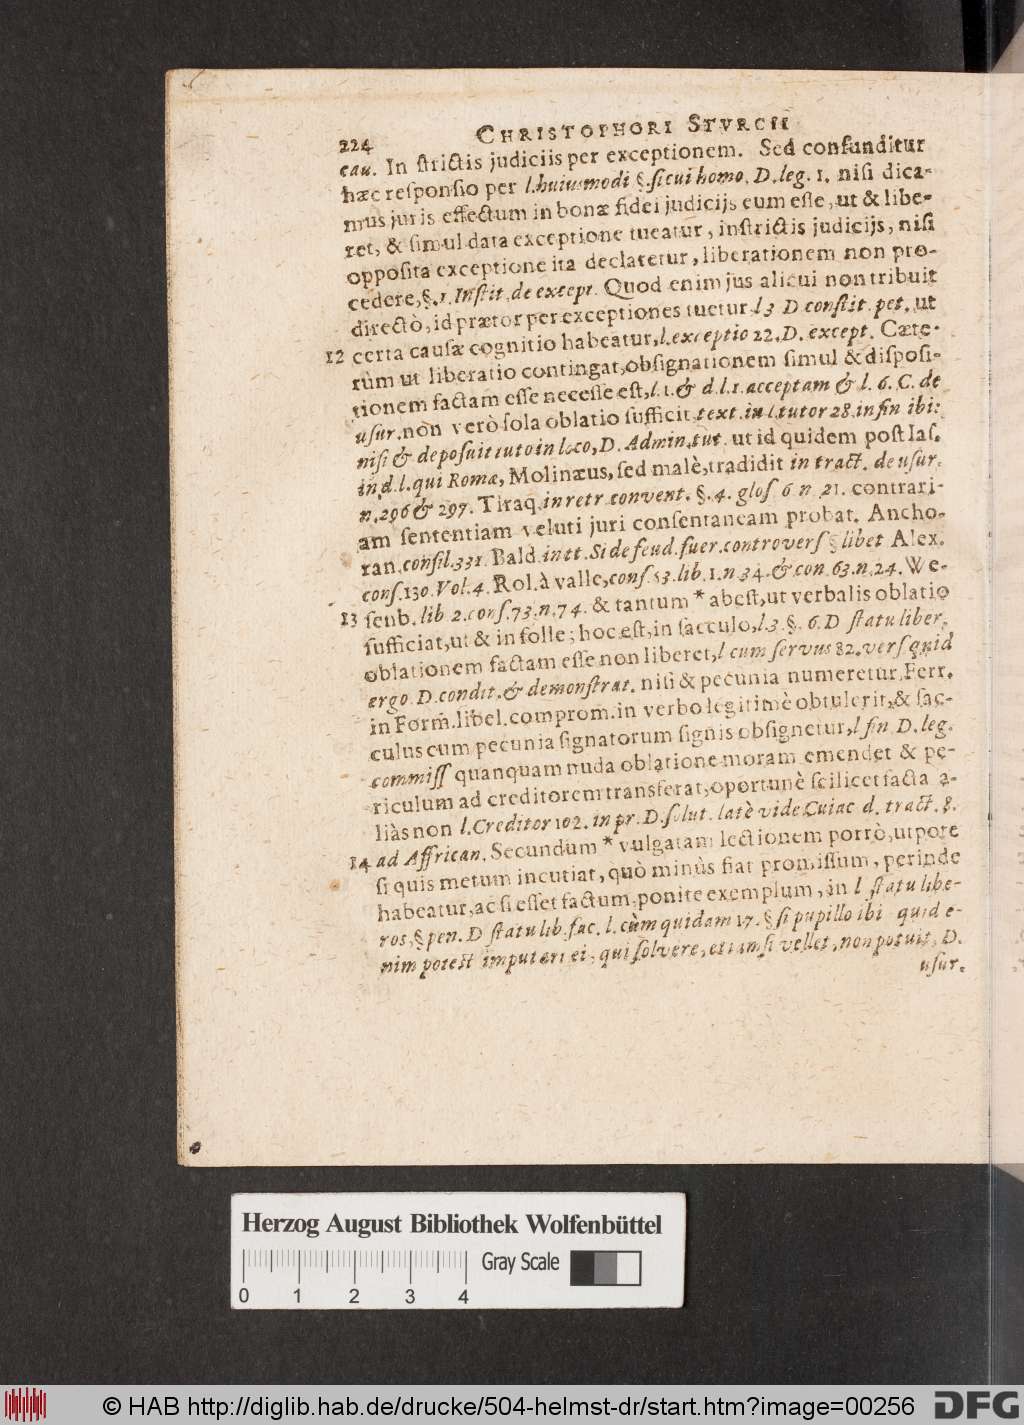 224 CHRISTOPHORI STVRCII
cau. In ſtrictis judiciis per exceptionem. Sed confunditur
hæc reſponſio per l. huiuſmodi §. ſi cui homo. D. leg. 1. niſi dica-
mus juris effectum in bonæ fidei judicijs eum eſſe, ut & libe-
ret, & ſimul data exceptione tueatur, inſtrictis judicijs, niſi
oppoſita exceptione ita declaretur, liberationem non pro-
cedere, §. 1. Inſtit. de except. Quod enim jus alicui non tribuit
directò, id prætor per exceptiones tuetur l 3 D conſtit. pet. ut
12 certa cauſæ cognitio habeatur, l. exceptio 22. D. except. Cæte-
rùm ut liberatio contingat, obſignationem ſimul & diſpoſi-
tionem factam eſſe neceſſe eſt, l. 1. & d. l. 1. acceptam & l. 6. C. de
uſur. non verò ſola oblatio ſufficit text. in l. tutor 28. in fin ibi:
niſi & depoſuit tuto in loco, D. Admin. tut. ut id quidem poſt Iaſ.
in d. l. qui Romæ, Molinæus, ſed malè, tradidit in tract. de uſur.
n. 296 & 297. Tiraq. in retr convent. §. 4. gloſ 6 n 21. contrari-
am ſententiam veluti juri conſentaneam probat. Ancho-
ran. conſil. 331. Bald. in tt. Si de feud. fuer. controverſ § libet Alex.
conſ. 130. Vol. 4. Rol. à valle, conſ. 53. lib. 1. n 34. & con. 63. n. 24. We-
13 ſenb. lib 2. conſ. 73. n. 74. & tantum * abeſt, ut verbalis oblatio
ſufficiat, ut & in folle; hoc eſt, in ſacculo, l. 3. §. 6. D ſtatu liber.
oblationem factam eſſe non liberet, l cum ſervus 82. verſ quid
ergo. D. condit. & demonſtrat. niſi & pecunia numeretur, Ferr.
in Form. libel. comprom. in verbo legitimè obtulerit, & ſac-
culus cum pecunia ſignatorum ſignis obſignetur, l fin D. leg.
commiſſ quanquam nuda oblatione moram emendet & pe-
riculum ad creditorem transferat, oportunè ſcilicet facta a-
liàs non l. Creditor 102. in pr. D. ſolut. latè vide Cuiac d. tract. 8.
14 ad Affrican. Secundum * vulgatam lectionem porrò, utpote
ſi quis metum incutiat, quò minùs fiat promiſſum, perinde
habeatur, ac ſi eſſet factum, ponite exemplum, in l ſtatu libe-
ros, § pen. D ſtatu lib. fac. l. cùm quidam 17. § ſi pupillo ibi quid e-
nim poteſt imputari ei, qui ſolvere, etiamſi vellet, non potuit, D.
uſur.
Herzog August Bibliothek Wolfenbüttel
Gray Scale
0 1 2 3 4
© HAB http://diglib.hab.de/drucke/504-helmst-dr/start.htm?image=00256
DFG